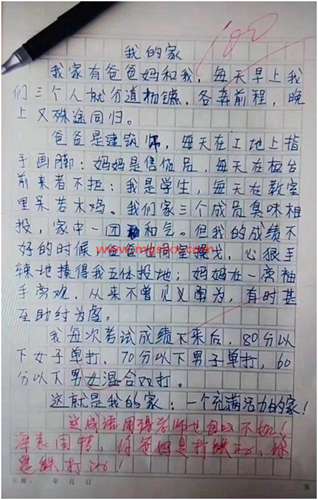 我的家
我家有爸爸妈和我，每天早上我
们三个人就分道扬镳，各奔前程，晚
上又殊途同归。
爸爸是建筑师，每天在工地上指
手画脚；妈妈是售货员，每天在柜台
前来者不拒；我是学生，每天在教室
里呆若木鸡。我们家三个成员臭味相
投，家中一团和气。但我的成绩不
好的时候，爸爸也同室操戈，心狠手
辣地揍得我五体投地；妈妈在一旁袖
手旁观，从来不曾见义勇为，有时甚
至助纣为虐。
我每次考试成绩下来后，80分以
下女子单打，70分以下男子单打，60
分以下男女混合双打。
这就是我的家：一个充满活力的家！